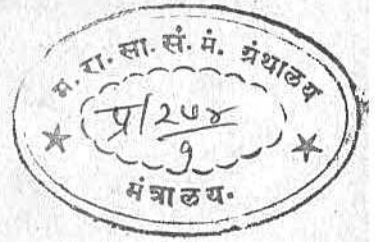 म. रा. सा. सं. मं. ग्रंथालय
प्र/२७४
१
मंत्रालय.